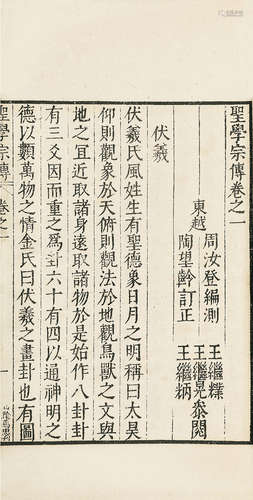 聖學宗傳卷之一
東越 周汝登編測 王繼
陶望齡訂正 王繼晃參閱
王繼炳
伏羲
伏羲氏風姓生有聖德象日月之明稱曰太昊
仰則觀象於天俯則觀法於地觀鳥獸之文與
地之宜近取諸身遠取諸物於是始作八卦卦
有三爻因而重之為卦六十有四以通神明之
德以類萬物之情金氏曰伏羲之畫卦也有圖
聖學宗傳
卷之一
一